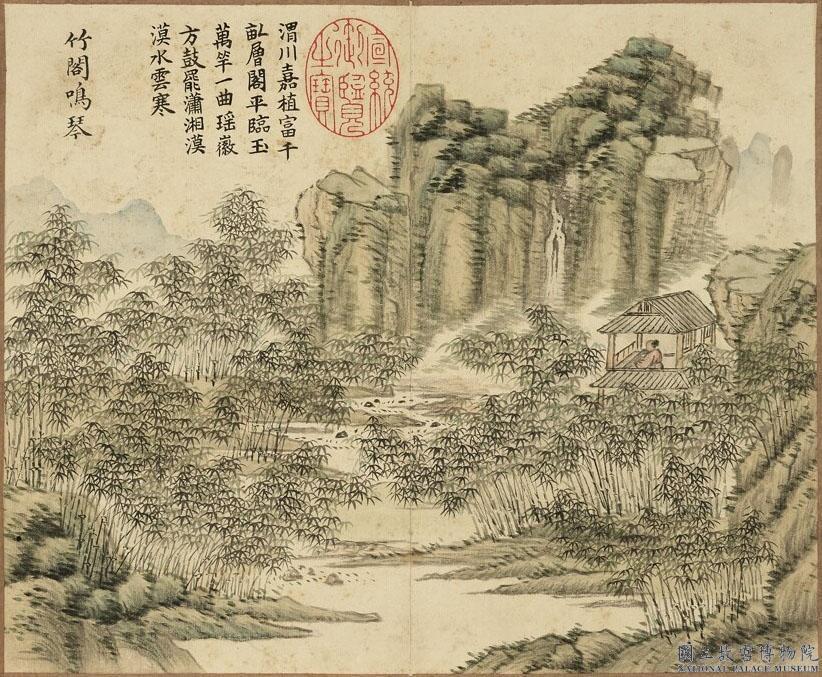 渭川嘉植富千
畝層閣平臨玉
萬竿一曲瑤徽
方鼓罷瀟湘漠
漠水雲寒
竹閣鳴琴
宣統御覽之寶
國立故宮博物院
NATIONAL PALACE MUSEUM